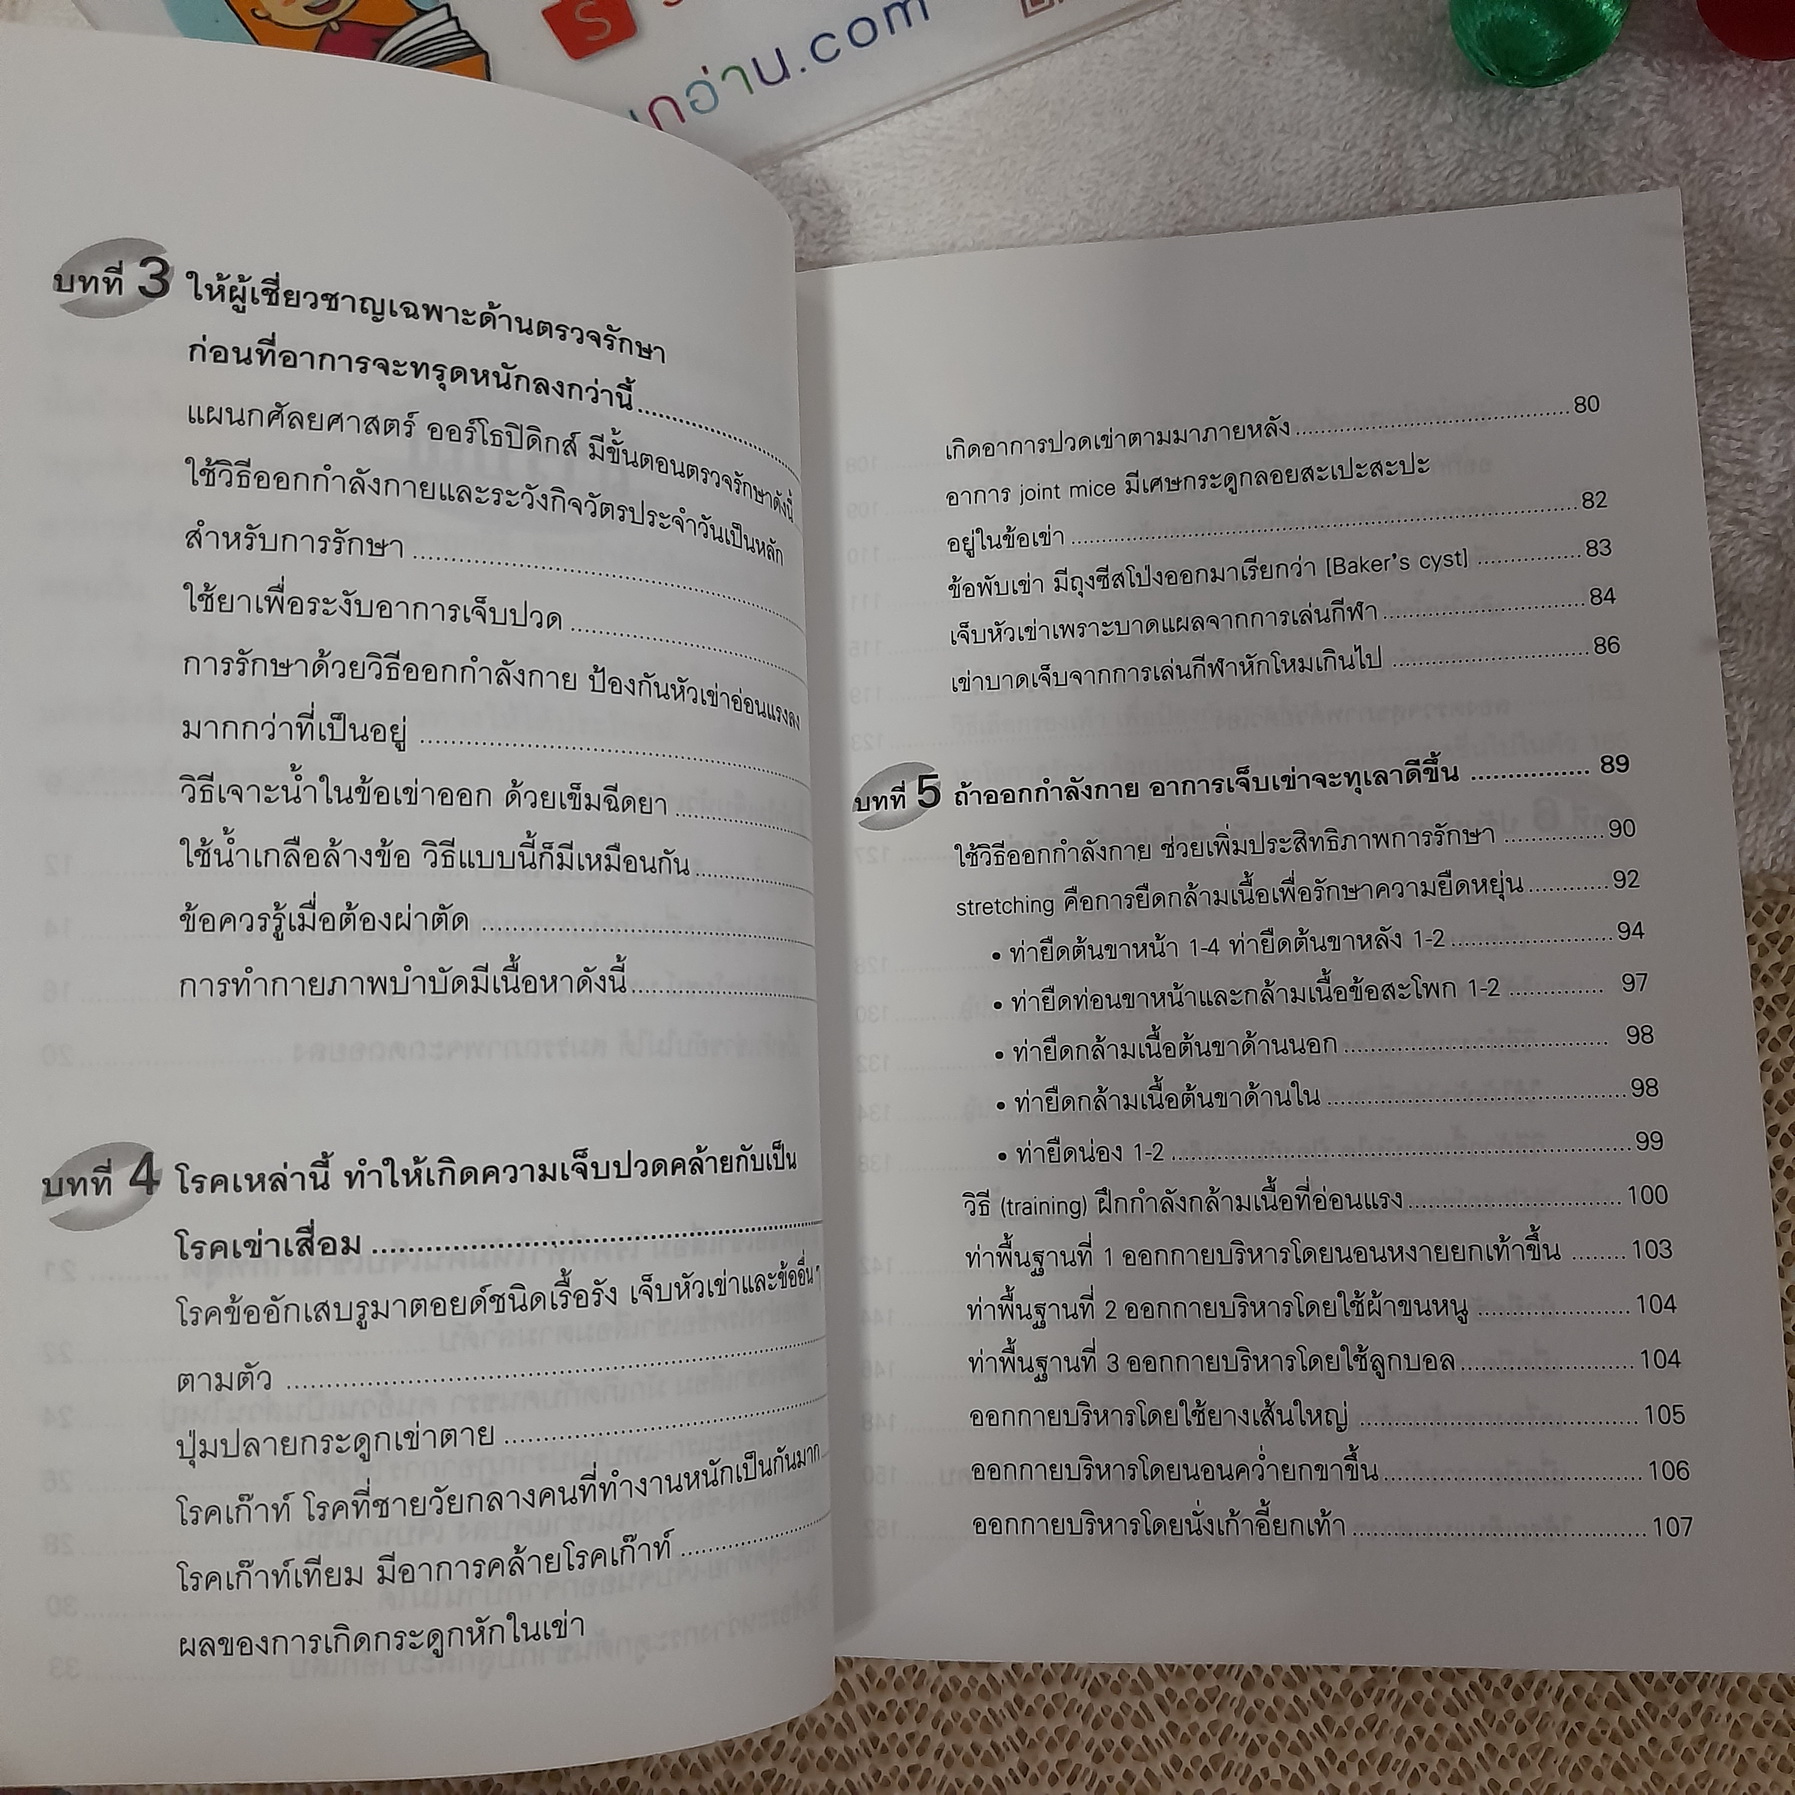 กอ่าน.com
บทที่ 3 ให้ผู้เชี่ยวชาญเฉพาะด้านตรวจรักษา
ก่อนที่อาการจะทรุดหนักลงกว่านี้
แผนกศัลยศาสตร์ ออร์โธปิดิกส์ มีขั้นตอนตรวจรักษาดังนี้
ใช้วิธีออกกำลังกายและระวังกิจวัตรประจำวันเป็นหลัก
สำหรับการรักษา
ใช้ยาเพื่อระงับอาการเจ็บปวด
การรักษาด้วยวิธีออกกำลังกาย ป้องกันหัวเข่าอ่อนแรงลง
มากกว่าที่เป็นอยู่
วิธีเจาะน้ำในข้อเข่าออก ด้วยเข็มฉีดยา
ใช้น้ำเกลือล้างข้อ วิธีแบบนี้ก็มีเหมือนกัน
ข้อควรรู้เมื่อต้องผ่าตัด
การทำกายภาพบำบัดมีเนื้อหาดังนี้
บทที่ 4 โรคเหล่านี้ ทำให้เกิดความเจ็บปวดคล้ายกับเป็น
โรคเข่าเสื่อม
โรคข้ออักเสบรูมาตอยด์ชนิดเรื้อรัง เจ็บหัวเข่าและข้ออื่นๆ
ตามตัว
ปุ่มปลายกระดูกเข่าตาย
โรคเก๊าท์ โรคที่ชายวัยกลางคนที่ทำงานหนักเป็นกันมาก
โรคเก๊าท์เทียม มีอาการคล้ายโรคเก๊าท์
ผลของการเกิดกระดูกหักในเข่า
เกิดอาการปวดเข่าตามมาภายหลัง 80
อาการ joint mice มีเศษกระดูกลอยสะเปะสะปะ
อยู่ในข้อเข่า 82
ข้อพับเข่า มีถุงซีสโป่งออกมาเรียกว่า [Baker's cyst] 83
เจ็บหัวเข่าเพราะบาดแผลจากการเล่นกีฬา 84
เข่าบาดเจ็บจากการเล่นกีฬาหักโหมเกินไป 86
บทที่ 5 ถ้าออกกำลังกาย อาการเจ็บเข่าจะทุเลาดีขึ้น 89
ใช้วิธีออกกำลังกาย ช่วยเพิ่มประสิทธิภาพการรักษา 90
stretching คือการยืดกล้ามเนื้อเพื่อรักษาความยืดหยุ่น 92
• ท่ายืดต้นขาหน้า 1-4 ท่ายืดต้นขาหลัง 1-2 94
• ท่ายืดท่อนขาหน้าและกล้ามเนื้อข้อสะโพก 1-2 97
• ท่ายืดกล้ามเนื้อต้นขาด้านนอก 98
• ท่ายืดกล้ามเนื้อต้นขาด้านใน 98
• ท่ายืดน่อง 1-2 99
วิธี (training) ฝึกกำลังกล้ามเนื้อที่อ่อนแรง 100
ท่าพื้นฐานที่ 1 ออกกายบริหารโดยนอนหงายยกเท้าขึ้น 103
ท่าพื้นฐานที่ 2 ออกกายบริหารโดยใช้ผ้าขนหนู 104
ท่าพื้นฐานที่ 3 ออกกายบริหารโดยใช้ลูกบอล 104
ออกกายบริหารโดยใช้ยางเส้นใหญ่ 105
ออกกายบริหารโดยนอนคว่ำยกขาขึ้น 106
ออกกายบริหารโดยนั่งเก้าอี้ยกเท้า 107